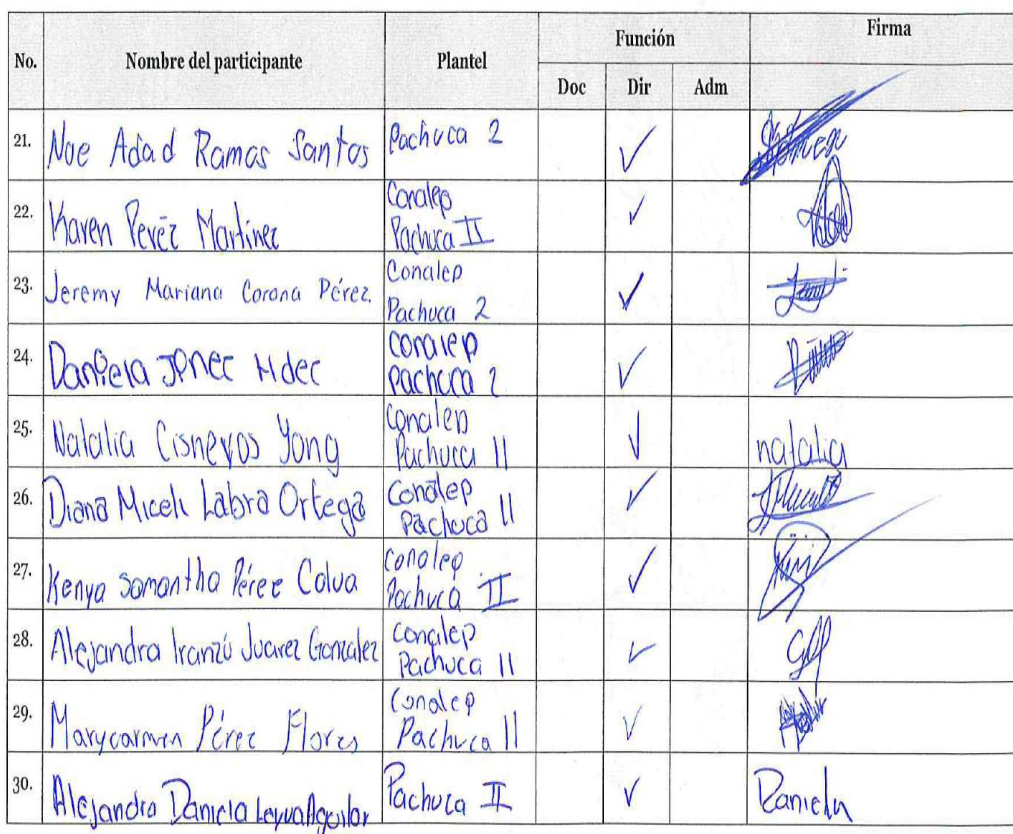 No. Nombre del participante Plantel Función Firma
Doc Dir Adm
21. Noe Adad Ramos Santos Pachuca 2
22. Karen Peréz Martinez Conalep
Pachuca II
23. Jeremy Mariana Corona Pérez. Conalep
Pachuca 2
24. Daniela Jonez Hdez Conalep
pachuca 2
25. Natalia Cisneros Yong Conalep
Pachuca II natalia
26. Diana Miceli Labra Ortega Conalep
Pachuca II
27. Kenya Samantha Pérez Calva Conalep
Pachuca II
28. Alejandra Iranzú Juarez Gonzalez Conalep
Pachuca II
29. Marycarmen Pérez Flores Conalep
Pachuca II
30. Alejandra Daniela Leyva Aguilar Pachuca II Daniela